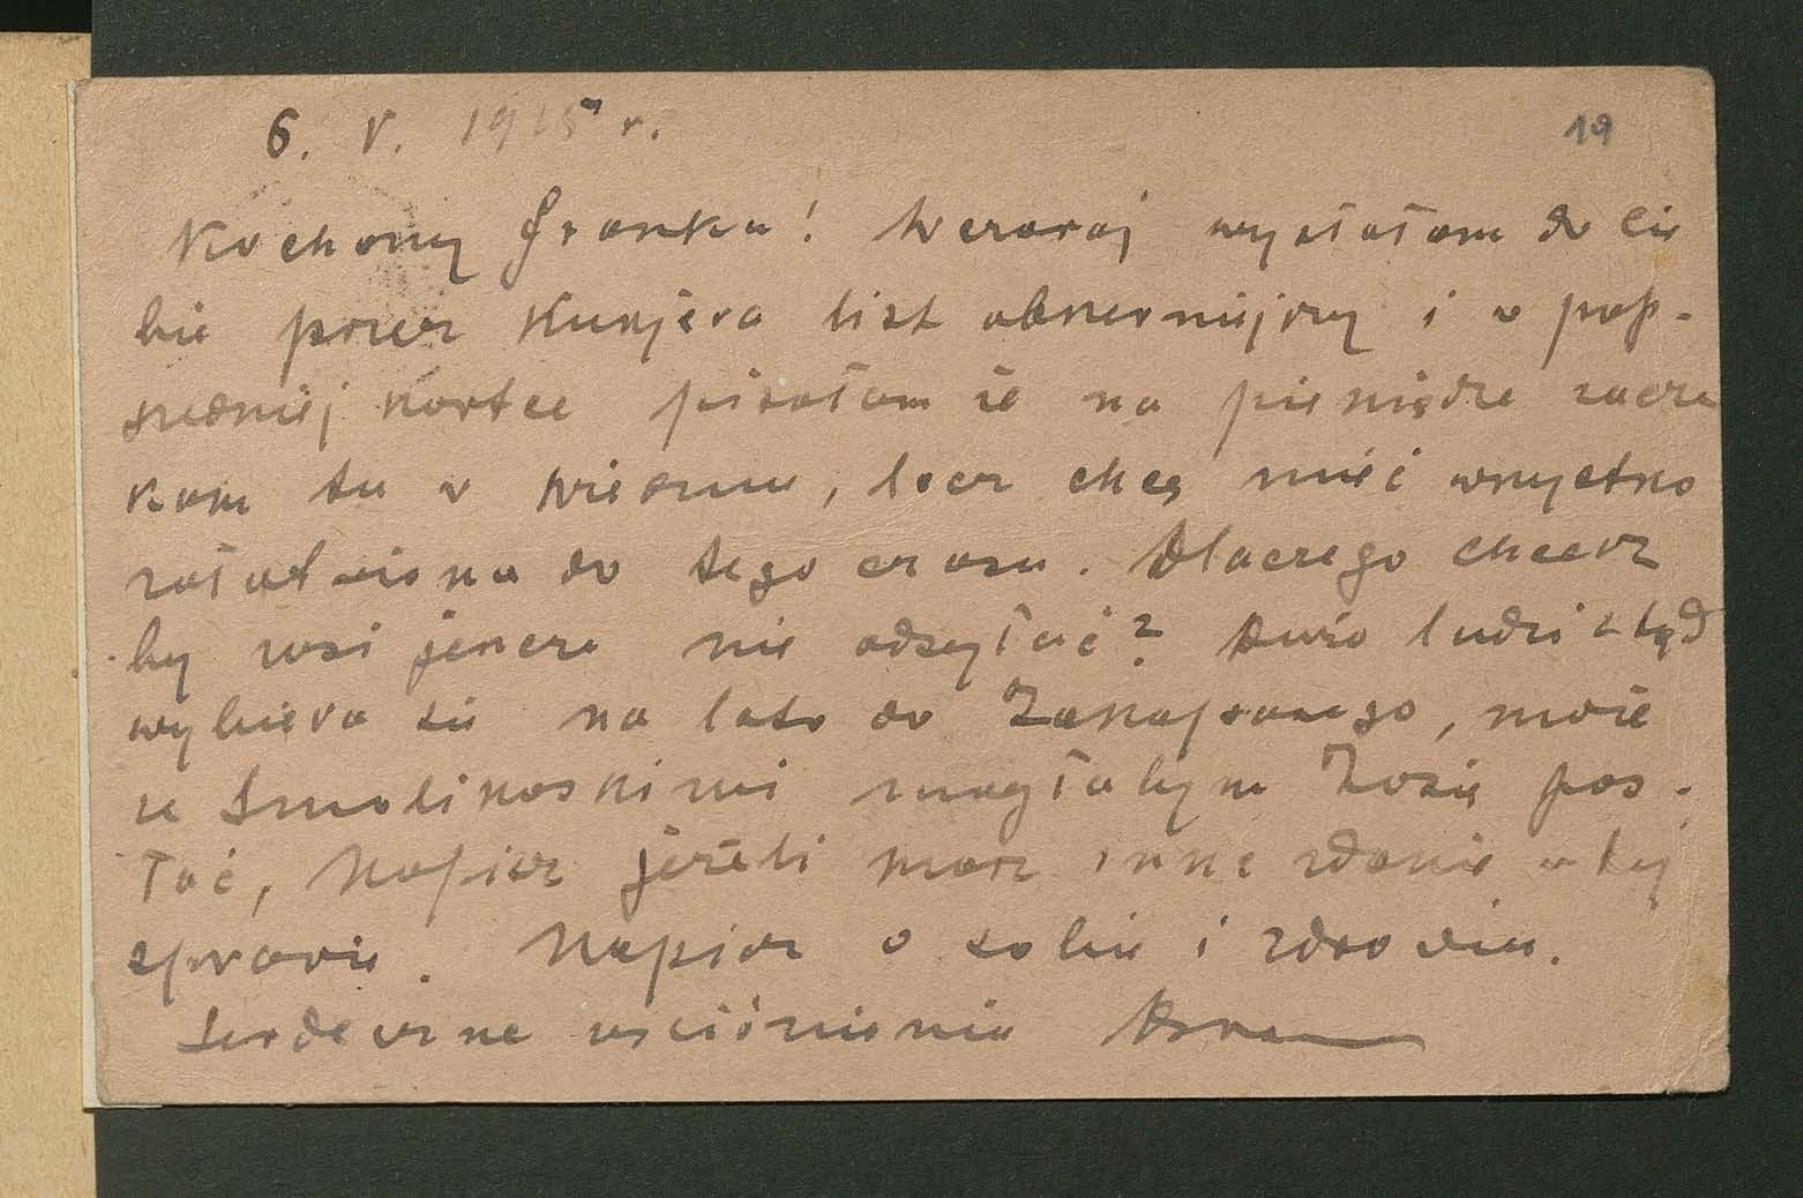 6. V. 1915 r.
19
Kochany Franku! Wczoraj wysłałam do Cie
bie przez Kurjera list obszerniejszy i w pop-
rzedniej kartce pisałam że na pieniądze zacze
kam tu w Wiedniu, lecz chcę mieć wszystko
załatwione do tego czasu. Dlaczego chcesz
by Zosi jeszcze nie odsyłać? Dużo ludzi ztąd
wybiera się na lato do Zakopanego, może
ze Smolikowskimi mogłabym Zosię pos-
łać, Napisz jeżeli masz inne zdanie w tej
sprawie. Napisz o sobie i zdrowiu.
Serdeczne uściśnienia